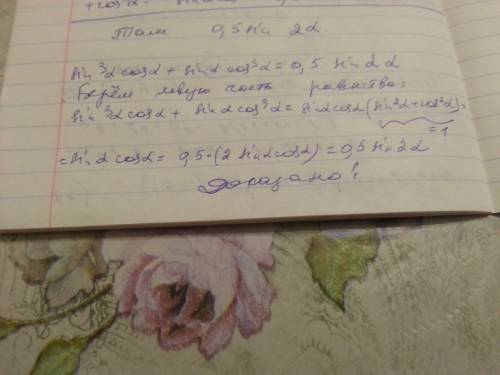 Там 0,5 sin 2α
sin³α cosα + sinα cos³α = 0,5 sin 2α
Берём левую часть равенства:
sin³α cosα + sinα cos³α = sinα cosα (sin²α + cos²α) =
= 1
= sin α cosα = 0,5·(2 sinα cosα) = 0,5 sin 2α
доказано!